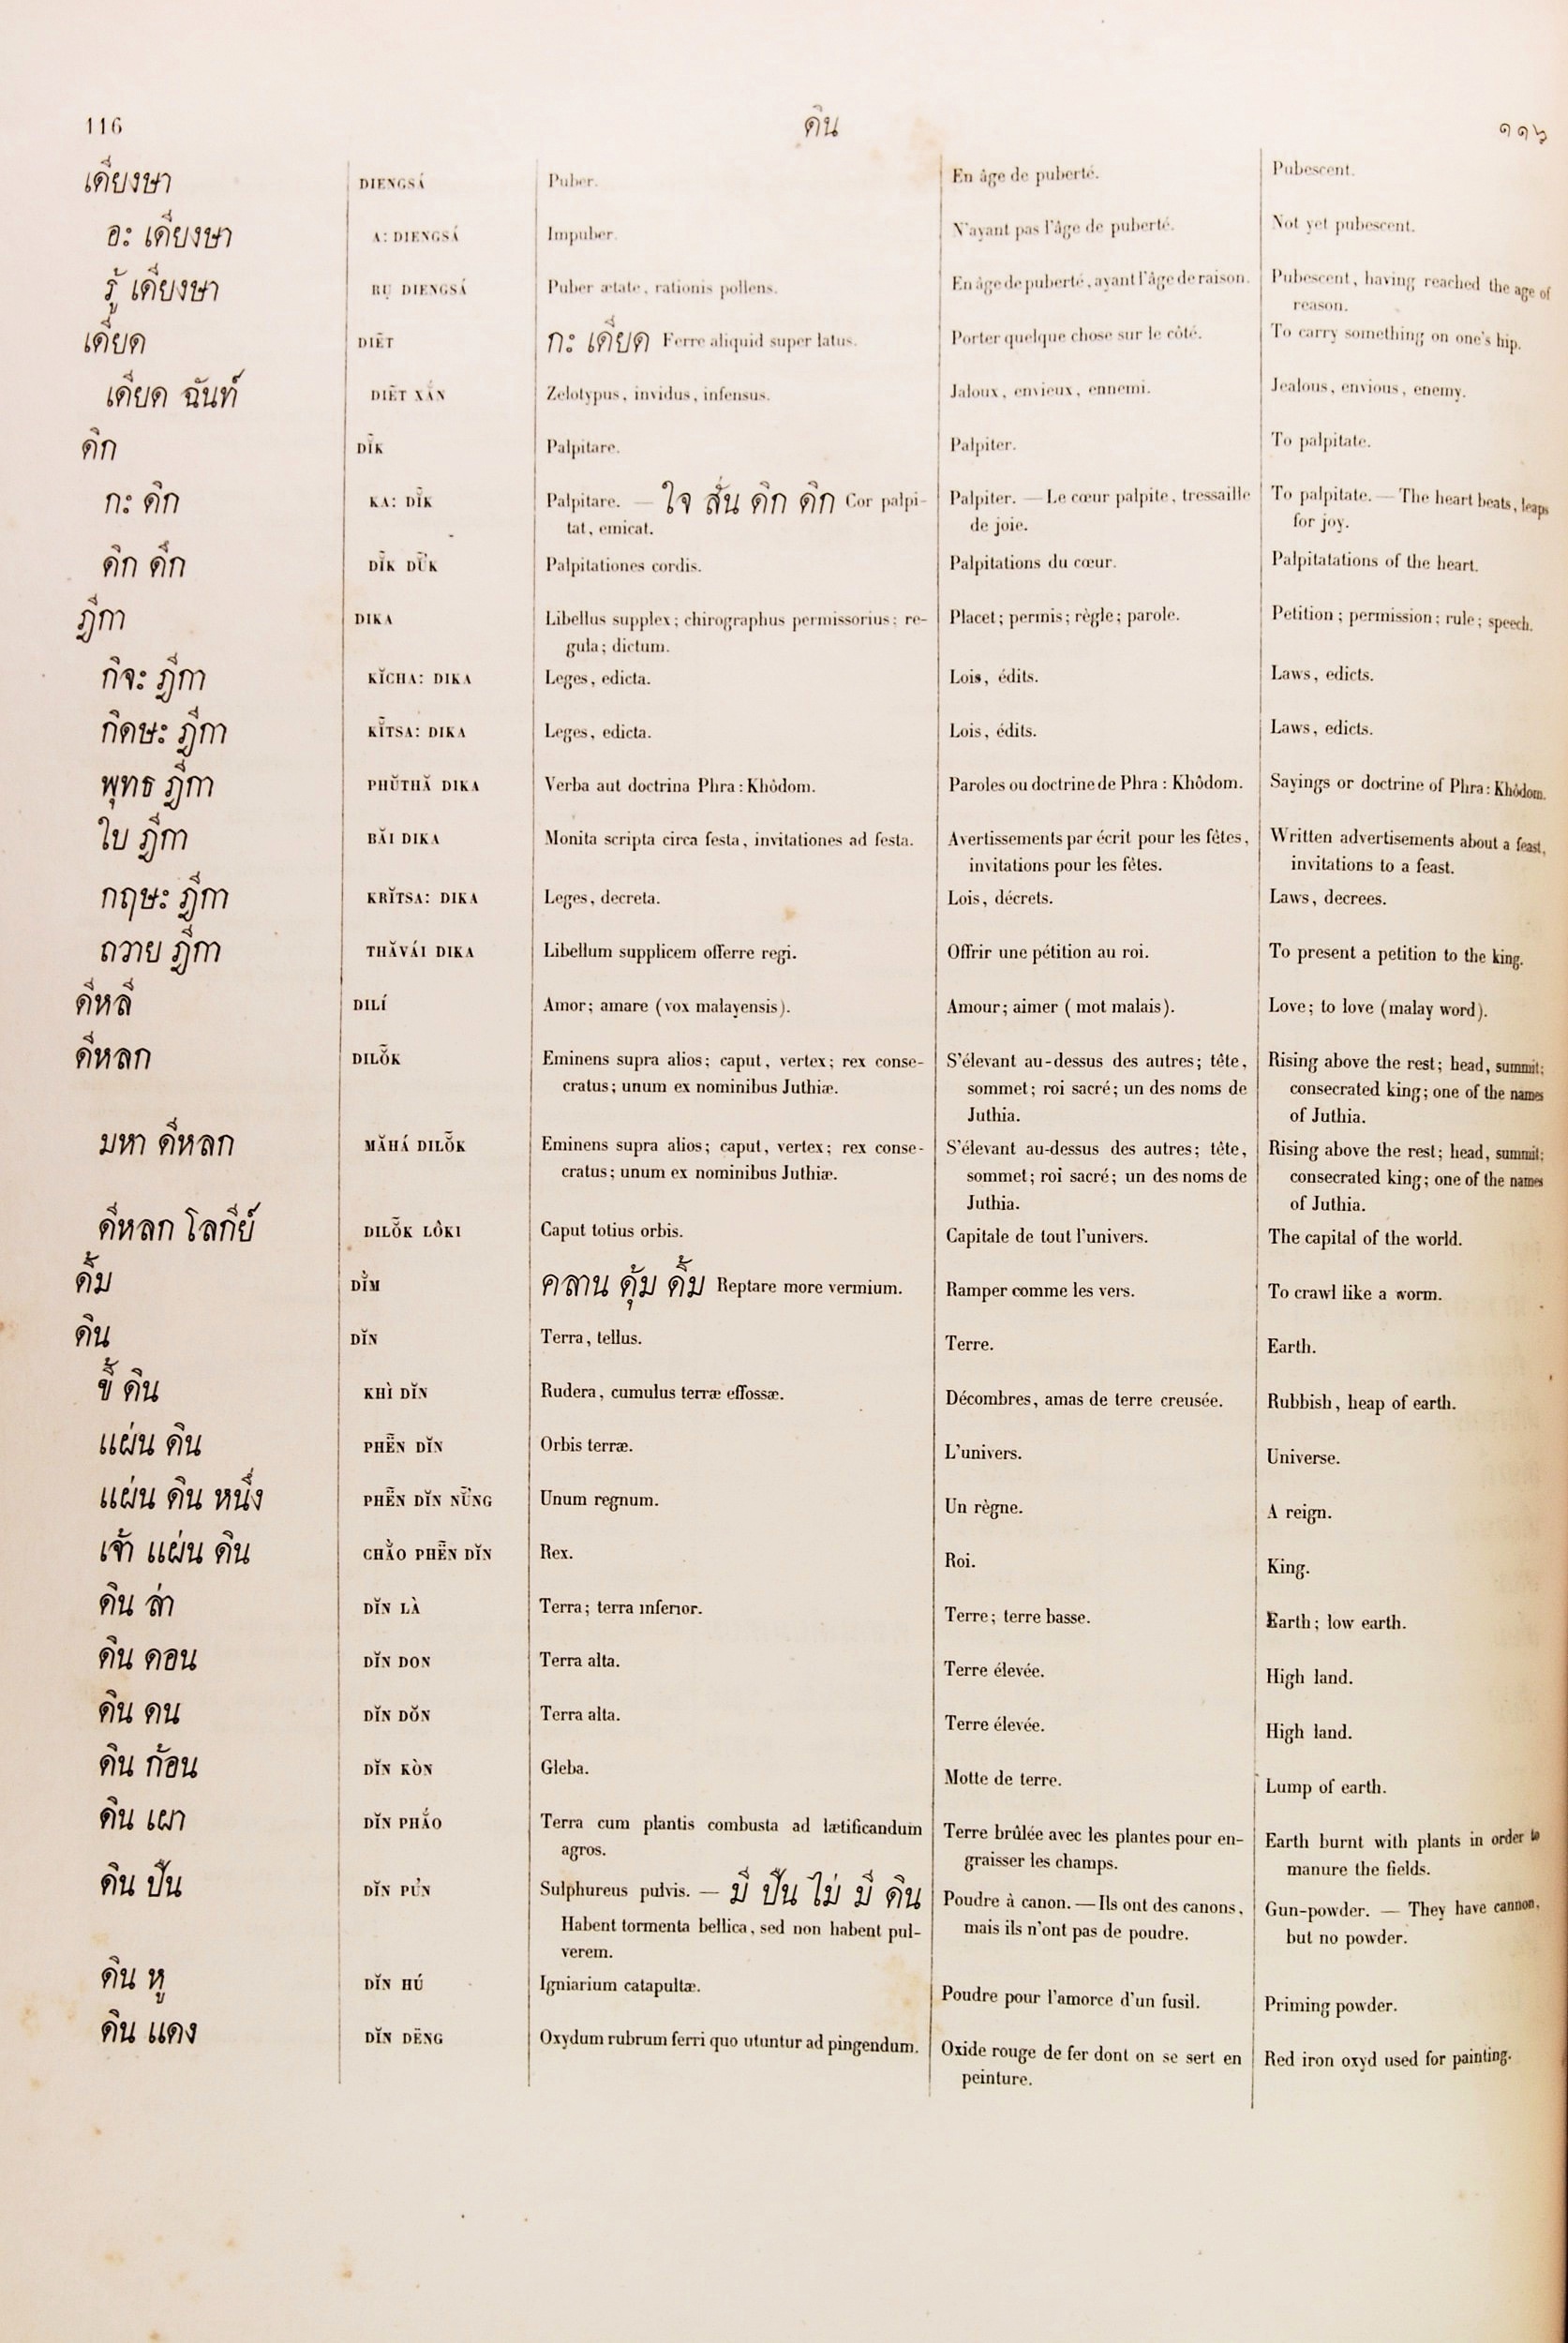 116 ดิน ๑๑๖
เดียงษา DIENGSÁ Puber. En âge de puberté. Pubescent.
อะ เดียงษา A: DIENGSÁ Impuber. N'ayant pas l'âge de puberté. Not yet pubescent.
รู้ เดียงษา RỤ DIENGSÁ Puber ætate, rationis pollens. En âge de puberté, ayant l'âge de raison. Pubescent, having reached the age of
reason.
เดียด DIĒT กะ เดียด Ferre aliquid super latus. Porter quelque chose sur le côté. To carry something on one's hip.
เดียด ฉันท์ DIĒT XẮN Zelotypus, invidus, infensus. Jaloux, envieux, ennemi. Jealous, envious, enemy.
ดิก DĬ̄K Palpitare. Palpiter. To palpitate.
กะ ดิก KA: DĬ̄K Palpitare. — ใจ สั่น ดิก ดิก Cor palpi- Palpiter. — Le cœur palpite, tressaille To palpitate. — The heart beats, leaps
tat, emicat. de joie. for joy.
ดิก ดึก DĬ̄K DŬ̄'K Palpitationes cordis. Palpitations du cœur. Palpitatations of the heart.
ฎีกา DIKA Libellus supplex; chirographus permissorius; re- Placet; permis; règle; parole. Petition; permission; rule; speech.
gula; dictum.
กิจะ ฎีกา KĬCHA: DIKA Leges, edicta. Lois, édits. Laws, edicts.
กิดษะ ฎีกา KĬ̄TSA: DIKA Leges, edicta. Lois, édits. Laws, edicts.
พุทธ ฎีกา PHŬTHĂ DIKA Verba aut doctrina Phra: Khôdom. Paroles ou doctrine de Phra: Khôdom. Sayings or doctrine of Phra: Khôdom.
ใบ ฎีกา BĂI DIKA Monita scripta circa festa, invitationes ad festa. Avertissements par écrit pour les fêtes, Written advertisements about a feast,
invitations pour les fêtes. invitations to a feast.
กฤษะ ฎีกา KRĬTSA: DIKA Leges, decreta. Lois, décrets. Laws, decrees.
ถวาย ฎีกา THĂVÁI DIKA Libellum supplicem offerre regi. Offrir une pétition au roi. To present a petition to the king.
ดีหลี DILÍ Amor; amare (vox malayensis). Amour; aimer (mot malais). Love; to love (malay word).
ดีหลก DILŎ̄K Eminens supra alios; caput, vertex; rex conse- S'élevant au-dessus des autres; tête, Rising above the rest; head, summit;
cratus; unum ex nominibus Juthiæ. sommet; roi sacré; un des noms de consecrated king; one of the names
Juthia. of Juthia.
มหา ดีหลก MĂHÁ DILŎ̄K Eminens supra alios; caput, vertex; rex conse- S'élevant au-dessus des autres; tête, Rising above the rest; head, summit;
cratus; unum ex nominibus Juthiæ. sommet; roi sacré; un des noms de consecrated king; one of the names
Juthia. of Juthia.
ดีหลก โลกีย์ DILŎ̄K LÔKI Caput totius orbis. Capitale de tout l'univers. The capital of the world.
ดิ้ม DĬ̀M คลาน ดุ้ม ดิ้ม Reptare more vermium. Ramper comme les vers. To crawl like a worm.
ดิน DĬN Terra, tellus. Terre. Earth.
ขี้ ดิน KHÌ DĬN Rudera, cumulus terræ effossæ. Décombres, amas de terre creusée. Rubbish, heap of earth.
แผ่น ดิน PHË̄N DĬN Orbis terræ. L'univers. Universe.
แผ่น ดิน หนึ่ง PHË̄N DĬN NŬ̄'NG Unum regnum. Un règne. A reign.
เจ้า แผ่น ดิน CHẰO PHË̄N DĬN Rex. Roi. King.
ดิน ล่า DĬN LÀ Terra; terra inferior. Terre; terre basse. Earth; low earth.
ดิน ดอน DĬN DON Terra alta. Terre élevée. High land.
ดิน ดน DĬN DŎN Terra alta. Terre élevée. High land.
ดิน ก้อน DĬN KÒN Gleba. Motte de terre. Lump of earth.
ดิน เผา DĬN PHẮO Terra cum plantis combusta ad lætificandum Terre brûlée avec les plantes pour en- Earth burnt with plants in order to
agros. graisser les champs. manure the fields.
ดิน ปืน DĬN PU'N Sulphureus pulvis. — มี ปืน ไม่ มี ดิน Poudre à canon. — Ils ont des canons, Gun-powder. — They have cannon,
Habent tormenta bellica, sed non habent pul- mais ils n'ont pas de poudre. but no powder.
verem.
ดิน หู DĬN HÚ Igniarium catapultæ. Poudre pour l'amorce d'un fusil. Priming powder.
ดิน แดง DĬN DËNG Oxydum rubrum ferri quo utuntur ad pingendum. Oxide rouge de fer dont on se sert en Red iron oxyd used for painting.
peinture.